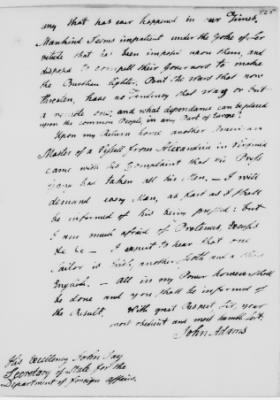 any that has ever happened in our Times.
Mankind seems impatient under the Yoke of Ser
vitude that has been imposed upon them, and
disposed to compell their Governors to make
the Burthen lighter. But the Wars that now
threaten, have no Tendency that way or but
a remote one, and what dependance can be placed
upon the common People in any Part of Europe?
Upon my Return home another American
Master of a Vessell from Alexandria in Virginia
came with his Complaint that the Press
gang has taken all his Men. — I will
demand every Man, as fast as I shall
be informed of his being pressed: but
I am much afraid of Pretences, Excuses
&c &c — I expect to hear that one
Sailor is Irish, another Scotch and a third
English. — All in my Power however shall
be done and you shall be informed of
the Result. With great Respect Sir, your
most obedient and most humble Sert.
John Adams
His Excellency John Jay
Secretary of State for the
Department of foreign affairs.